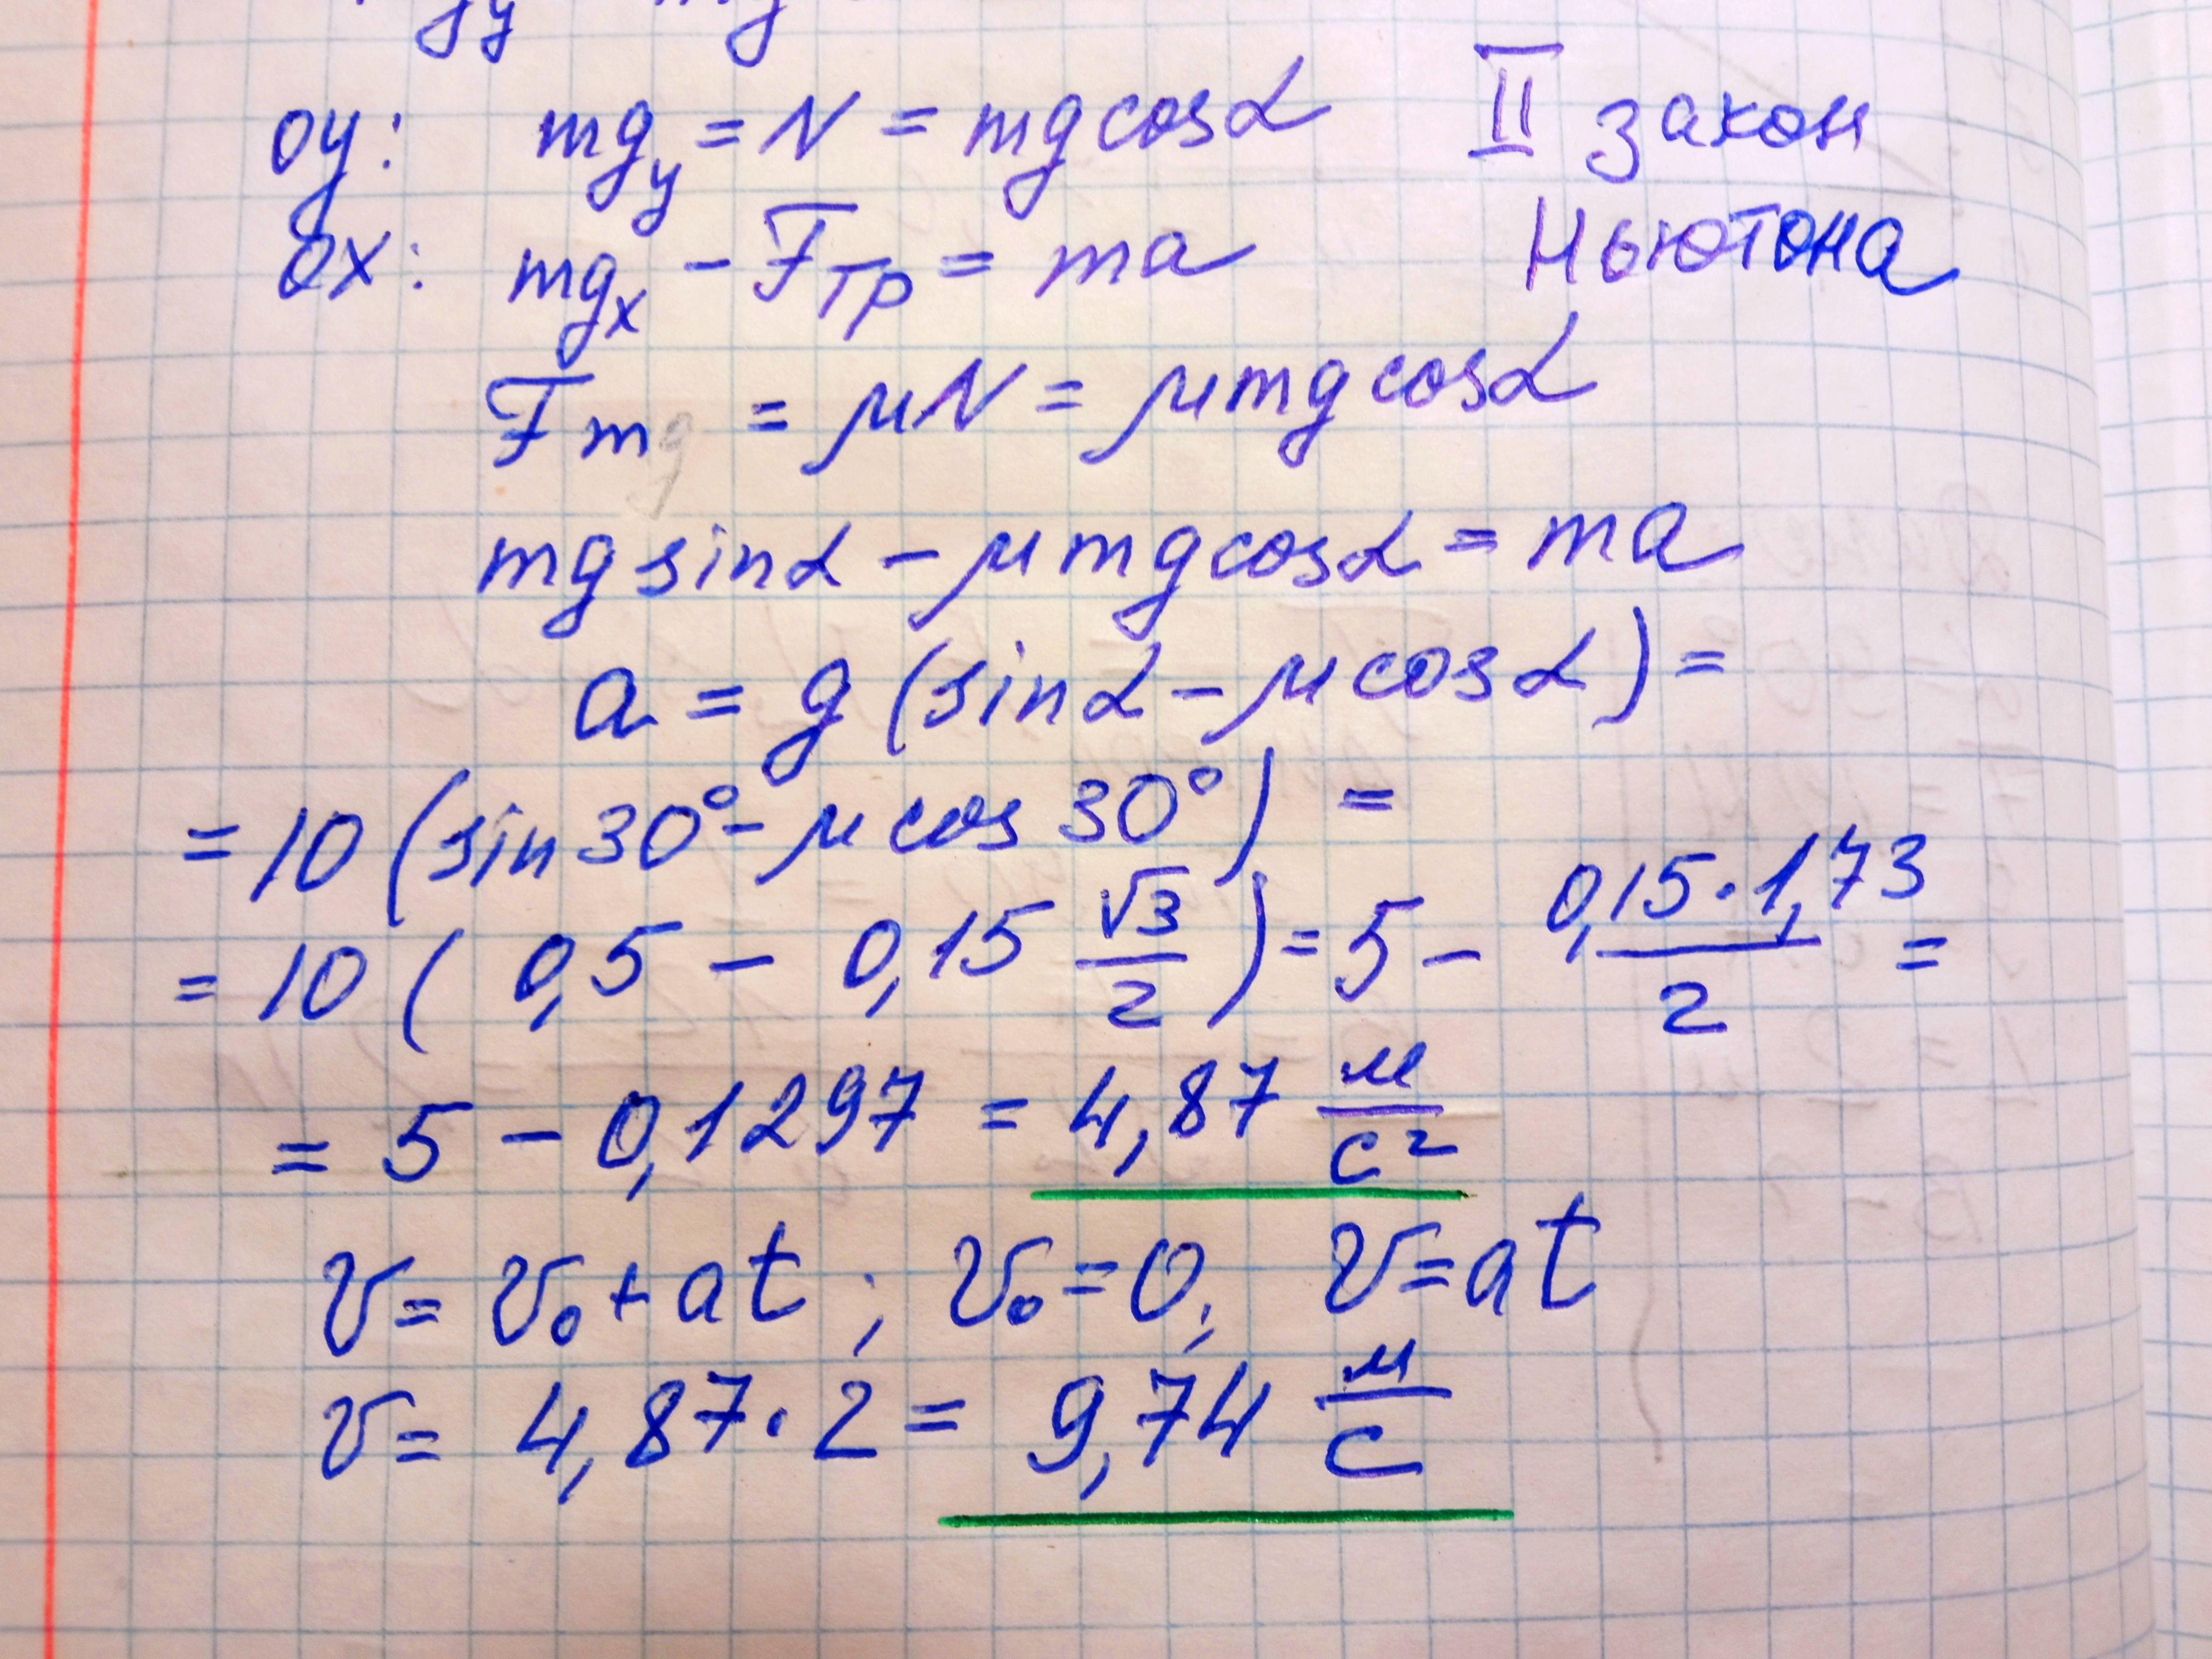 oy: mgy = N = mg cosα II закон
ox: mgx - Fтр = ma Ньютона
Fm = μN = μmg cosα
mg sinα - μmg cosα = ma
a = g (sinα - μ cosα) =
= 10 (sin 30° - μ cos 30°) =
= 10 (0,5 - 0,15 √3/2) = 5 - 0,15·1,73/2 =
= 5 - 0,1297 = 4,87 м/с²
v = v₀ + at ; v₀ = 0; v = at
v = 4,87 · 2 = 9,74 м/с